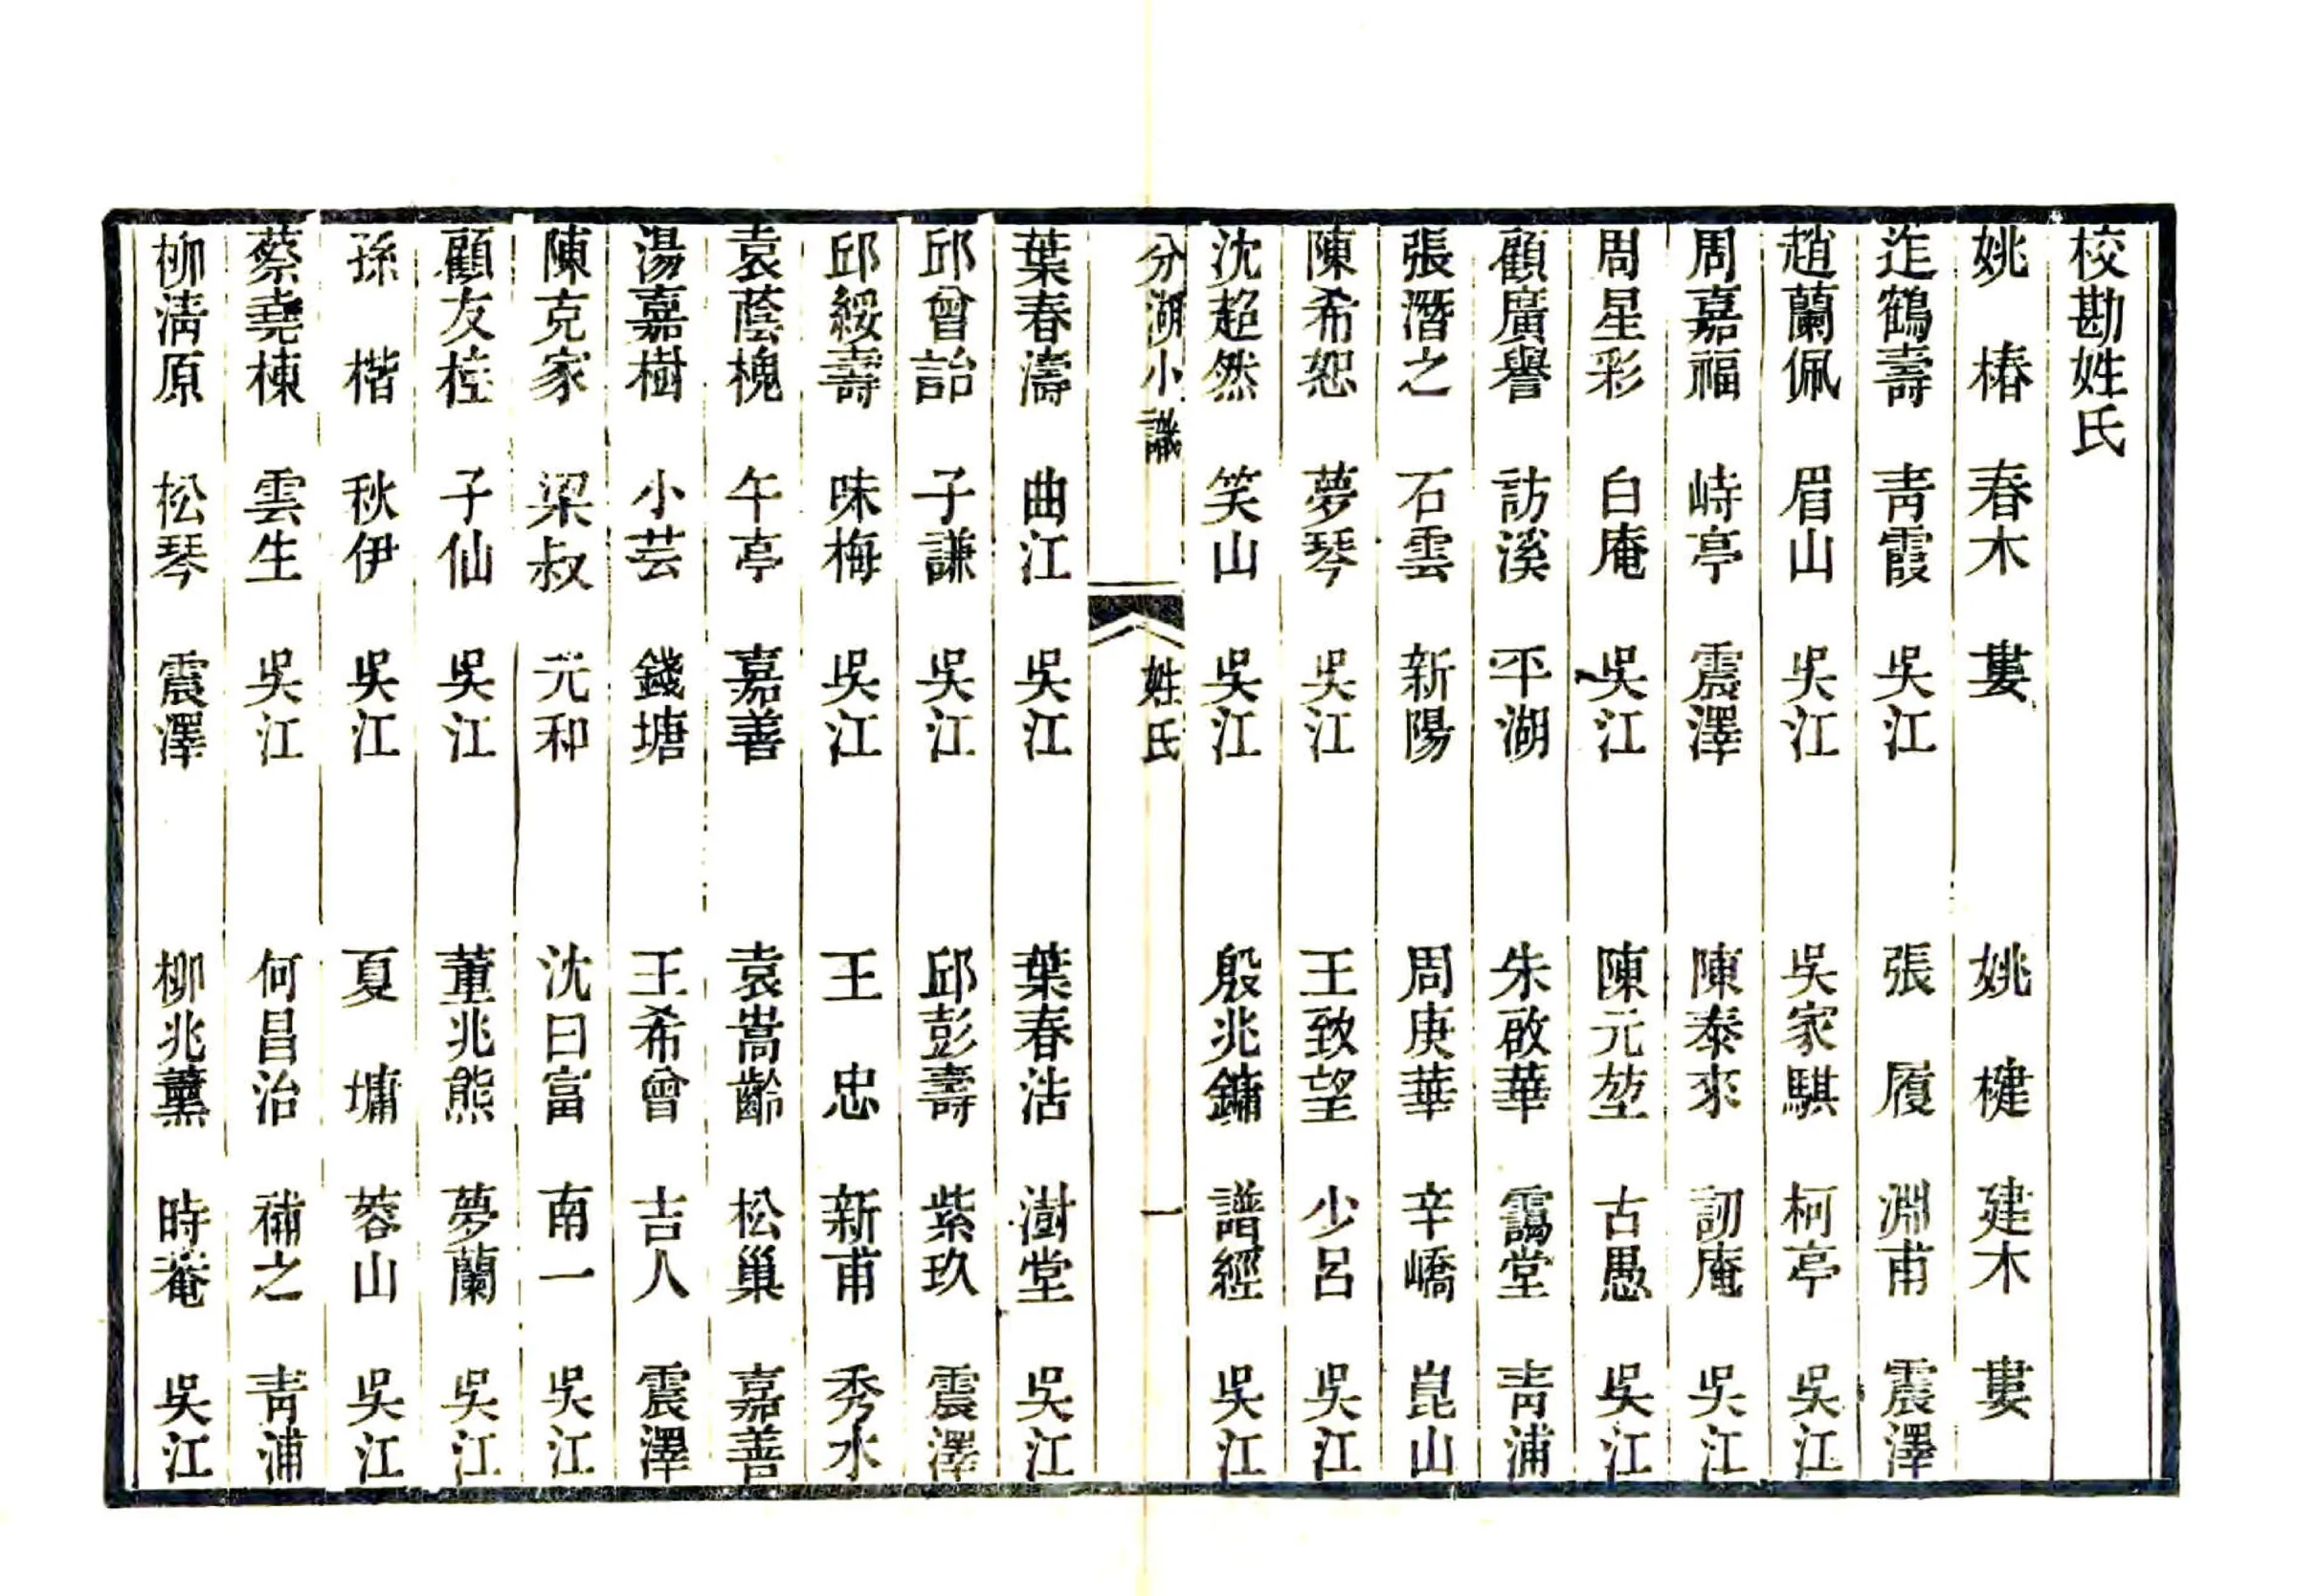 校勘姓氏
姚 椿 春木 婁 姚 楗 建木 婁
迮鶴壽 青霞 吳江 張 履 淵甫 震澤
趙蘭佩 眉山 吳江 吳家騏 柯亭 吳江
周嘉福 峙亭 震澤 陳泰來 訒庵 吳江
周星彩 白庵 吳江 陳元堃 古愚 吳江
顧廣譽 訪溪 平湖 朱啟華 靄堂 青浦
張潛之 石雲 新陽 周庚華 辛嶠 崑山
陳希恕 夢琴 吳江 王致望 少呂 吳江
沈超然 笑山 吳江 殷兆鏞 譜經 吳江
分湖小識 姓氏 一
葉春濤 曲江 吳江 葉春浩 澍堂 吳江
邱曾詒 子謙 吳江 邱彭壽 紫玖 震澤
邱綏壽 味梅 吳江 王 忠 新甫 秀水
袁蔭槐 午亭 嘉善 袁嵩齡 松巢 嘉善
湯嘉樹 小芸 錢塘 王希曾 吉人 震澤
陳克家 梁叔 元和 沈曰富 南一 吳江
顧友桂 子仙 吳江 董兆熊 夢蘭 吳江
孫 楷 秋伊 吳江 夏 墉 蓉山 吳江
蔡堯棟 雲生 吳江 何昌治 補之 青浦
柳清原 松琴 震澤 柳兆薰 時菴 吳江